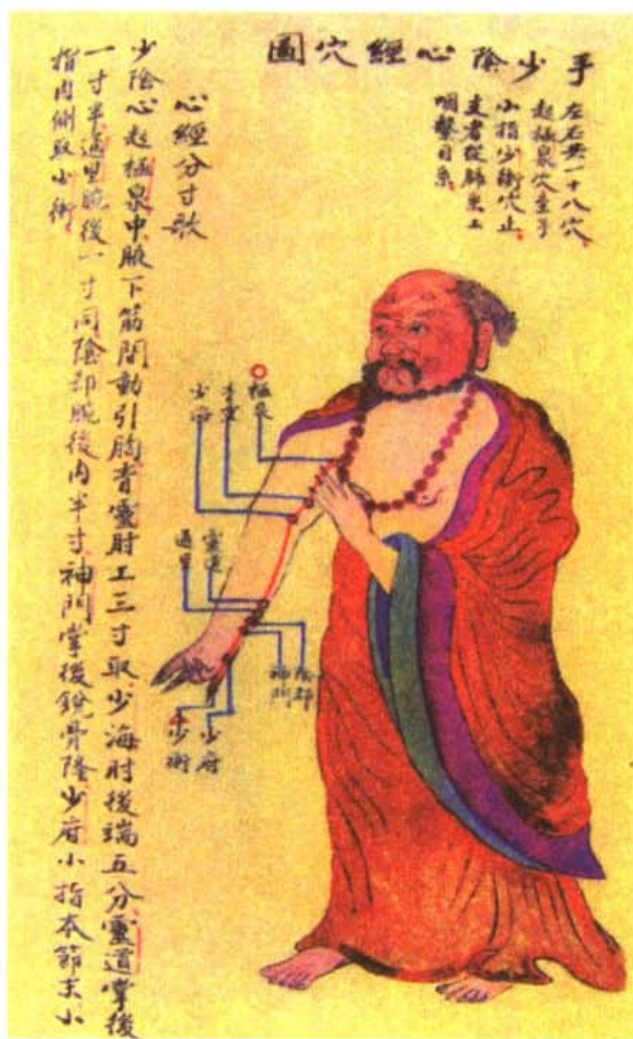 手少陰心經穴圖
左右共一十八穴。
起極泉穴至手
小指少衝穴止
支者從肺系上
咽繫目系
心經分寸歌
少陰心起極泉中腋下筋間動引胸青靈肘上三寸取少海肘後端五分靈道掌後
一寸半通里腕後一寸同陰郄腕後內半寸神門掌後銳骨隆少府小指本節末小
指內側取小衝
極泉
青靈
少海
靈道
通里
陰郄
神門
少府
少衝